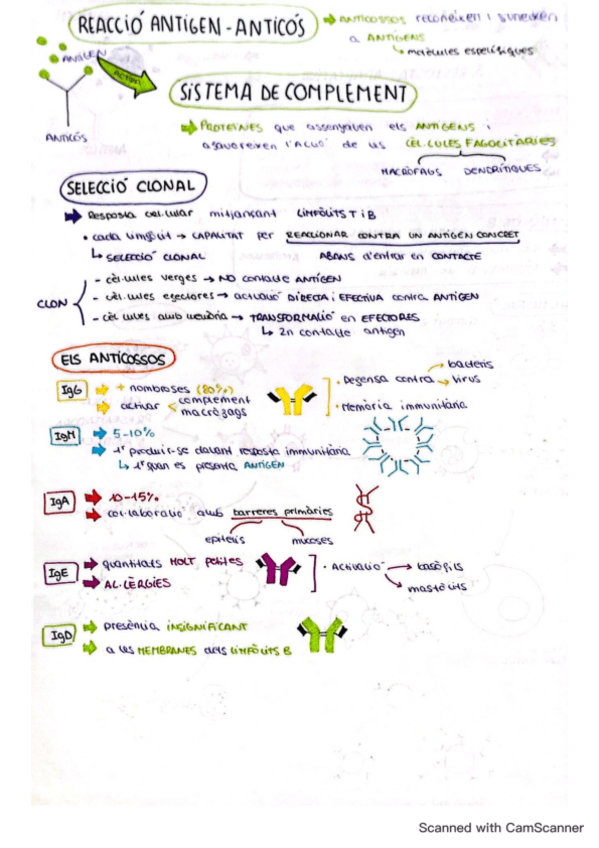 REACCIÓ ANTÍGEN-ANTICÒS
ANTICOSSOS reconeixen i s'uneixen
a ANTÍGENS
molècules específiques
ANTÍGEN
ACTIVA
ANTICÒS
SISTEMA DE COMPLEMENT
PROTEÏNES que assenyalen els ANTÍGENS i
afavoreixen l'acció de les CÈL·LULES FAGOCITÀRIES
MACRÒFAGS DENDRÍTIQUES
SELECCIÓ CLONAL
Resposta cel·lular mitjançant LIMFÒCITS T i B
• cada limfòcit → CAPACITAT per REACCIONAR CONTRA UN ANTIGEN CONCRET
↳ SELECCIÓ CLONAL ABANS d'entrar en CONTACTE
CLON
- cèl·lules verges → NO contacte ANTÍGEN
- cèl·lules efectores → activació DIRECTA i EFECTIVA contra ANTIGEN
- cèl·lules amb memòria → TRANSFORMACIÓ en EFECTORES
↳ 2n contacte antigen
ELS ANTICOSSOS
IgG
+ nombroses (80%)
activar complement
macròfags
• Defensa contra bacteris
virus
• Memòria immunitària
IgM
5-10%
1r produir-se davant resposta immunitària
↳ 1r quan es presenta ANTÍGEN
IgA
10-15%
col·laboració amb barreres primàries
epitelis mucoses
IgE
quantitats MOLT petites
AL·LÈRGIES
• Activació → basòfils
mastòcits
IgD
presència INSIGNIFICANT
a les MEMBRANES dels LIMFÒCITS B
Scanned with CamScanner